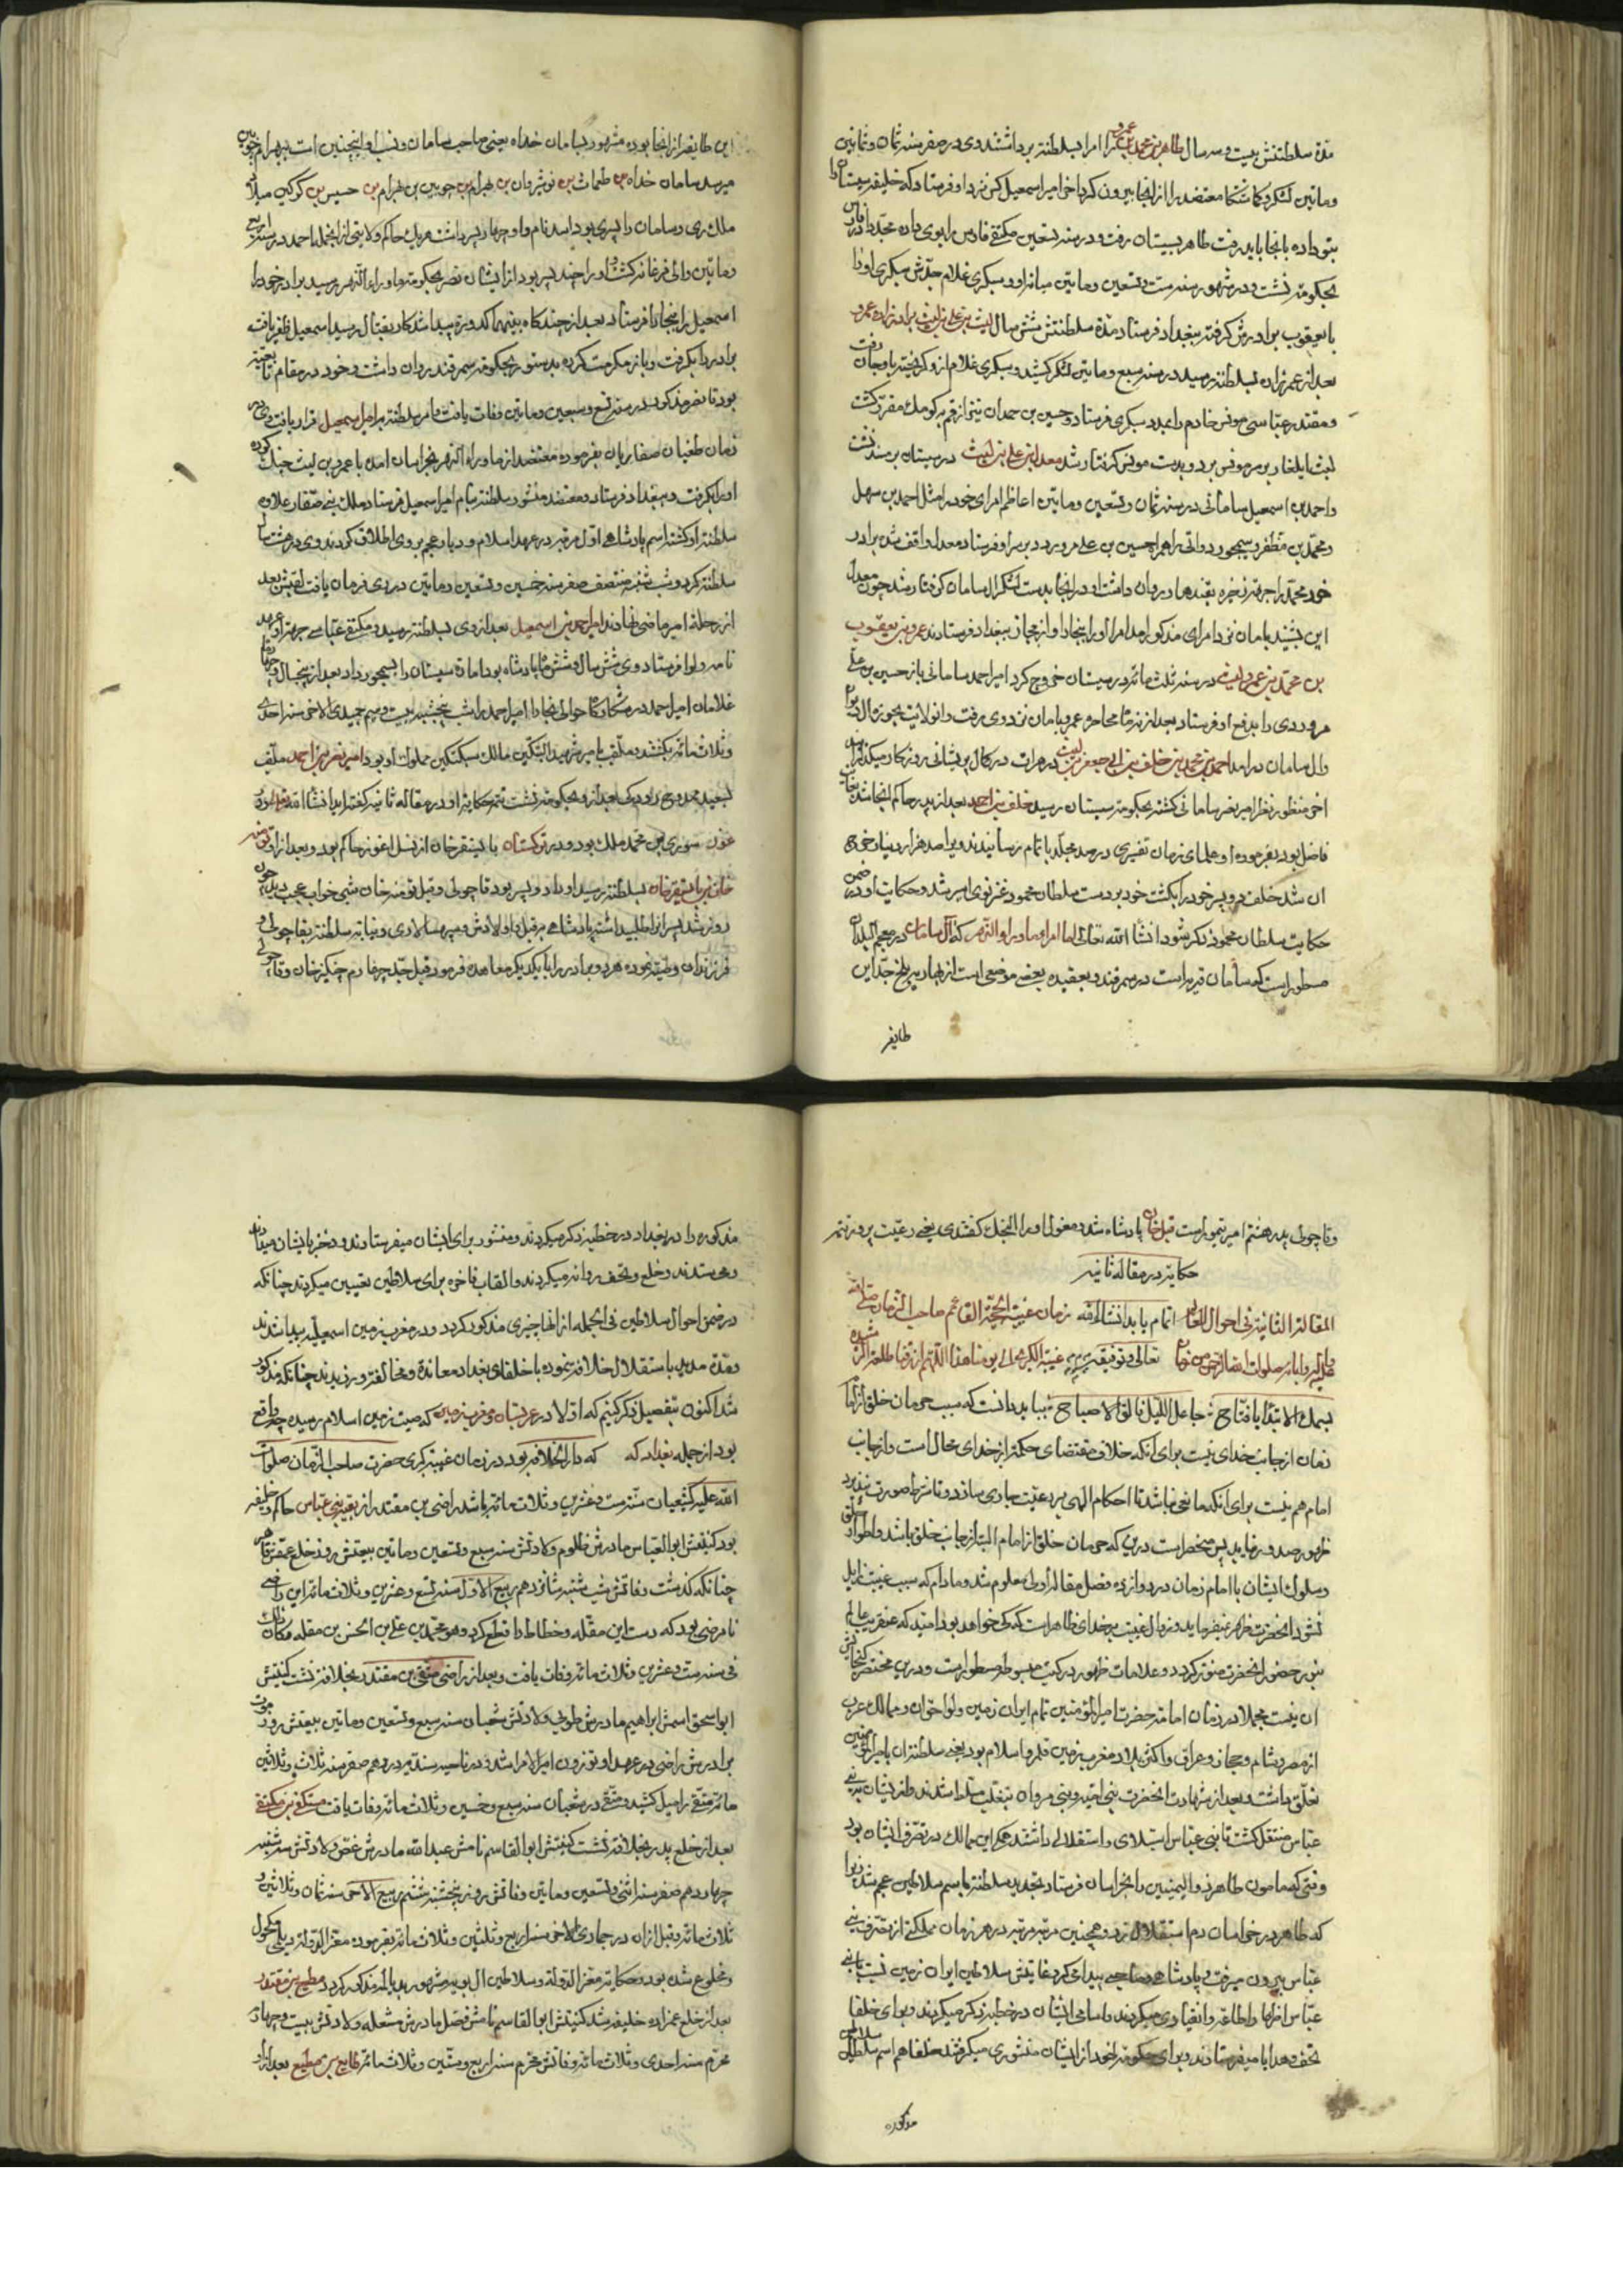 مدة سلطنتش بیست و سه سال طاهر بن محمد بن عمرو را امرا بسلطنة برداشتند وی در صفر سنه ثمان و ثمانین
و ماتین لشکر کشید معتضد را از انجا بیرون کرد اخر امیر اسمعیل کس نزد او فرستاد که خلیفه سیستان را
بتو داده بانجا باید رفت طاهر بسیستان رفت و در سنه تسعین مکتفی فارس را بوی داده مجددا در فارس
بحکومة نشست و در شهور سنه ست و تسعین و ماتین میانه او و سبکری غلام جدش سبکری او را
با یعقوب برادرش گرفته ببغداد فرستاد مدة سلطنتش شش سال لیث بن علی بن لیث برادر زاده عمرو
بعد از عمزاده بسلطنة رسید در سنه سبع و ماتین لشکر کشید و سبکری غلام از و گریخته بارجان رفت
و مقتدر عباسی مونس خادم را بمدد سبکری فرستاد و حسین بن حمدان نیز از قم بکومک مقرر گشت
لیث ایلغار بر سر مونس برد و بدست مونس گرفتار شد معدل بن علی بن لیث در سیستان بر مسند نشست
و احمد بن اسمعیل سامانی در سنه ثمان و تسعین و ماتین اعاظم امرای خود را مثل احمد بن سهل
و محمد بن مظفر و سیمجور دواتی را همراه حسین بن علی مرورودی بر سر او فرستاد معدل واقف شده برادر
خود محمد را جهة ذخیره بقندهار روان داشت او در انجا بدست لشکر ال سامان گرفتار شد چون معدل
این بشنید بامان نزد امرای مذکور امد امرا او را ببخارا و از بخارا ببغداد فرستادند عمرو بن یعقوب
بن محمد بن عمرو لیث در سنه ثلث مائه در سیستان خروج کرد امیر احمد سامانی باز حسین بن علی
مروردی را بدفع او فرستاد بعد از نه ماه محاصره عمرو بامان نزد وی رفت و انولایت بحوزه ال دیوان
وال سامان در امد احمد بن محمد بن خلف بن ابی جعفر بن لیث در هرات در کمال پریشانی روزگار میگذرانید
اخر منظور نظر امیر نصر سامانی گشته بحکومة سیستان رسید خلف بن احمد بعد از پدر حاکم انجا شد بغایت
فاضل بود بفرموده او علمای زمان تفسیری در صد مجلد باتمام رسانیدند و او صد هزار دینار خرج
ان شد خلف دو پسر خود را بکشت خود بر دست سلطان محمود غزنوی اسیر شد و حکایت او در ضمن
حکایت سلطان محمود ذکر شود انشا الله تعالی اما امرای ماوراء النهر که ال سامان در معجم البلدان
مسطور است که سامان قریه است در سمرقند و بعقیده بعضی موضعی است از بهار به بلخ جد این
طایفه
این طایفه از انجا بوده مشهور بسامان خداه یعنی صاحب سامان و نسب او اینچنین است ببهرام چوبین
میرسد سامان خداه بن طمغاث بن نوشروان بن بهرام بن چوبین بن بهرام بن حسیس بن کوکین میلاد
ملک ری و سامان را پسری بود اسد نام و او چهار پسر داشت هر یک حاکم ولایتی از انجمله احمد در سنه اربع
و ماتین والی فرغانه گشت و او را چند پسر بود از ایشان نصر بحکومة ماوراء النهر رسید برادر خود را
اسمعیل را ببخارا فرستاد بعد از چند گاه بینهما کدورة پیدا شد کار بقتال رسید اسمعیل ظفر یافت
برادر را بگرفت و باز مکرمت کرده بدستور بحکومة سمرقند روان داشت و خود در مقام تابعیت
بود تا نصر مذکور در سنه تسع و سبعین و ماتین وفات یافت و امر سلطنة بر امیر اسمعیل قرار یافت و در
زمان طغیان صفاریان بفرموده معتضد از ماوراء النهر بخراسان امده با عمرو بن لیث جنک کرده
او را بگرفت و ببغداد فرستاد و معتضد منشور سلطنة بنام امیر اسمعیل فرستاد ملک بنی صفار علاوه
سلطنة او گشته اسم پادشاهی اول مرتبه در عهد اسلام و دیار عجم بر وی اطلاق کردند وی هشت سال
سلطنة کرد و شب شنبه منتصف صفر سنه خمس و تسعین و ماتین در ری فرمان یافت لقبش بعد
از رحلة امیر ماضی نهادند امیر احمد بن اسمعیل بعد از وی بسلطنة رسید و مکتفی عباسی جهة او عهد
نامه و لوا فرستاد وی شش سال و شش ماه پادشاه بود امارة سیستان را بسیمجور داد بعد از پنجسال و چهار ماه
غلامان امیر احمد در شکارگاه حوالی بخارا امیر احمد را شب پنجشنبه بیست و سیم جمیدی الاخر سنه احدی
و ثلاث مائه بکشتند و ملقب بامیر شهید البتکین مالک سبکتکین مملوک او بود امیر نصر بن احمد ملقب
بسعید ممدوح رودکی بعد از و بحکومة نشست تتمه حکایة او در مقاله ثانیه گفته اید انشا الله
بود و در ترکستان بایسنقر خان از نسل اغوز حاکم بود و بعد از او تومنه
خان بن بایسنقر خان بسلطنة رسید او را دو پسر بود قاچولی و قبل تومنه خان شبی خواب عجب دید چون
روز شد پسرانرا طلبید البته پادشاهی بر قبل و اولادش و سپه سالاری و نیابة سلطنة بقاچولی و
فرزندان وصیة نموده هر دو برادر را با یکدیگر معاهده فرمود قبل جد چهارم چنکیز خان و قاچولی
و قاچولی پدر هشتم امیر تیمور است قبل خان پادشاه شد و مغول او را النجک گفتندی یعنی رعیت پرور تتمه
حکایة در مقاله ثانیه
المقالة الثانیة فی احوال اتمام یابد انشاء الله زمان غیبة الحجة القائم صاحب الزمان صلی الله
علیه و ابائه صلوات الله الرحمن تعالی و توفیقه غیبة الکبری الی یومنا هذا اللهم ارزقنا طلعته
بسمک الابتدا یا فتاح یا جاعل اللیل فالق الاصباح بباید دانست که سبب حرمان خلق از امام
زمان از جانب خدای نیست برای انکه خلاف مقتضای حکمة از خدای محال است و از جانب
امام هم نیست برای انکه مانعی نباشد تا احکام الهی بر رعیت جاری سازد و تا شرط صورت نبندد
ظهور صدور نیاید پس منحصر است درین که حرمان خلق از امام البته از جانب خلق باشد و اطوار خلق
و سلوک ایشان با امام زمان در دوازده فصل مقاله اولی معلوم شد و مادام که سبب غیبت زایل
نشود انحضرت ظاهر نمیفرماید و زوال غیبت بر خدای ظاهر است که کی خواهد بود امید که عنقریب عالم
بنور حضور انحضرت منور گردد و علامات ظهور در کتب مبسوطه مسطور است و درین مختصر گنجایش
ان نیست مجملا در زمان امامة حضرت امیر المؤمنین تمام ایران زمین و لواحق ان و ممالک عرب
از مصر و شام و حجاز و عراق و اکثر بلاد مغرب زمین قلمرو اسلام بود یعنی سلطنة ان بامیر المؤمنین
تعلق داشت و بعد از شهادت انحضرت بنی امیه و بنی مروان بتغلب مسلط شدند و از ایشان ببنی
عباس منتقل گشت تا بنی عباس استیلای و استقلالی داشتند همه این ممالک در تصرف ایشان بود
وقتی که مامون طاهر ذو الیمینین را بخراسان فرستاد تجدید سلطنة باسم سلاطین عجم شد زیرا
که طاهر در خراسان دم استقلال زد و همچنین مرتبه مرتبه در هر زمان مملکتی از تصرف بنی
عباس بیرون میرفت و پادشاهی و صاحبی پیدا میکرد غایتش سلاطین ایران زمین نسبت ببنی
عباس اظهار اطاعة و انقیادی میکردند و اسامی ایشان در خطبه ذکر میکردند و برای خلفا
تحف و هدایا میفرستادند و برای حکومة خود از ایشان منشوری میگرفتند خلفا هم اسم سلاطین
مذکوره
مذکوره را در بغداد در خطبه ذکر میکردند و منشور برای ایشان میفرستادند و دختر بایشان میدادند
و می ستدند و خلع و تحف روانه میکردند و القاب فاخره برای سلاطین تعیین میکردند چنانکه
در ضمن احوال سلاطین فی الجمله از انها چیزی مذکور گردد و در مغرب زمین اسمعیلیه پیدا شدند
و مدة مدید باستقلال خلافة نموده با خلفای بغداد معانده و مخالفة ورزیدند چنانکه مذکور
شد اکنون بتفصیل ذکر کنیم که اولا در عربستان و مغرب زمین که صیت زمین اسلام رسیده چه واقع
بود از جمله بغداد که که دار الخلافة بود در زمان غیبة کبری حضرت صاحب الزمان صلوات
الله علیه که شعبان سنه ست و عشرین و ثلاث مائه باشد راضی بن مقتدر از بقیه بنی عباس حاکم و خلیفه
بود کنیتش ابو العباس مادرش ظلوم ولادتش سنه سبع و تسعین و ماتین بیعتش روز خلع عمش قاهر
چنانکه گذشت وفاتش شب شنبه شانزدهم ربیع الاول سنه تسع و عشرین و ثلاث مائه این راضی
نامرضی بود که دست ابن مقله و خطاط را قطع کرد و هو محمد بن علی بن الحسن بن مقله و کان ذلک
فی سنه ست و عشرین و ثلاث مائه وفات یافت و بعد از راضی متقی بن مقتدر بخلافة نشست کنیتش
ابو اسحق اسمش ابراهیم مادرش طوبی ولادتش شعبان سنه سبع و تسعین و ماتین بیعتش روز موت
برادرش راضی در عهد او توزون امیر الامرا شد و در ناحیه سندیه در دهم صفر سنه ثلاث و ثلاثین
مائه متقی را میل کشید و متقی در شعبان سنه سبع و خمسین و ثلاث مائه وفات یافت مستکفی بن مکتفی
بعد از خلع پدر بخلافة نشست کنیتش ابو القاسم نامش عبد الله مادرش غصن ولادتش سه شنبه
چهاردهم صفر سنه اثنی و تسعین و ماتین وفاتش روز پنجشنبه ششم ربیع الاخر سنه ثمان و ثلاثین و
ثلاث مائه و قبل از ان در جمادی الاخر سنه اربع و ثلثین و ثلاث مائه بفرموده معز الدوله دیلمی مکحول
و مخلوع شده بود و حکایة معز الدولة و سلاطین ال بویه مشهور بدیالمه مذکور گردد مطیع بن مقتدر
بعد از خلع عمزاده خلیفه شد کنیتش ابو القاسم نامش فضل مادرش مشعله ولادتش بیست و چهارم
محرم سنه احدی و ثلاث مائه وفاتش محرم سنه اربع و ستین و ثلاث مائه طایع بن مطیع بعد از او